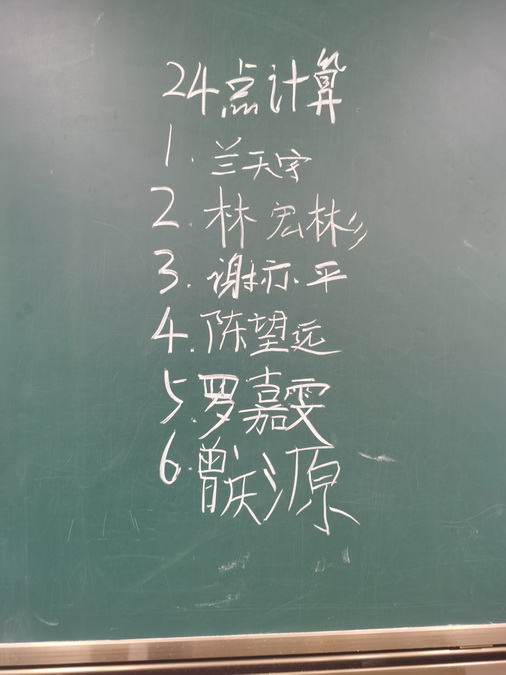 24点计算
1. 兰天宇
2. 林宏彬
3. 谢亦平
4. 陈望远
5. 罗嘉雯
6. 曾庆源